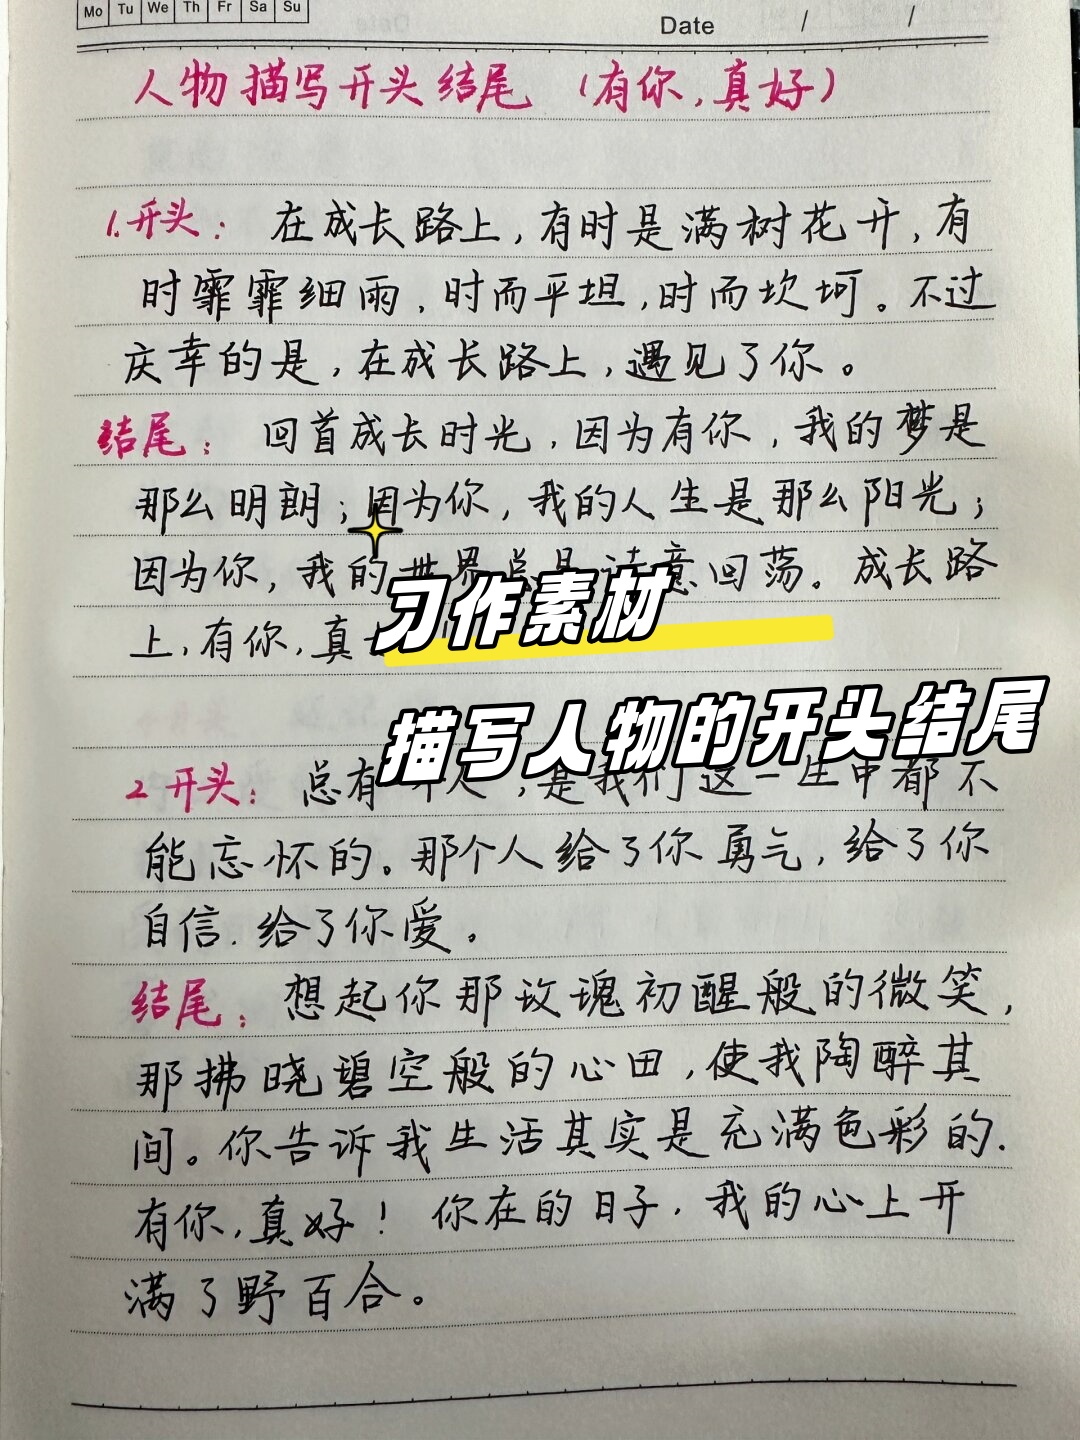 Mo Tu We Th Fr Sa Su
Date / /
人物描写开头结尾（有你,真好）
1.开头：在成长路上,有时是满树花开,有
时霏霏细雨,时而平坦,时而坎坷。不过
庆幸的是,在成长路上,遇见了你。
结尾：回首成长时光,因为有你,我的梦是
那么明朗;因为你,我的人生是那么阳光;
因为你,我的世界总是诗意回荡。成长路
上,有你,真
习作素材
描写人物的开头结尾
2 开头：总有 个人,是我们这一生中都不
能忘怀的。那个人给了你勇气,给了你
自信.给了你爱。
结尾：想起你那玫瑰初醒般的微笑,
那拂晓碧空般的心田,使我陶醉其
间。你告诉我生活其实是充满色彩的.
有你,真好！你在的日子,我的心上开
满了野百合。